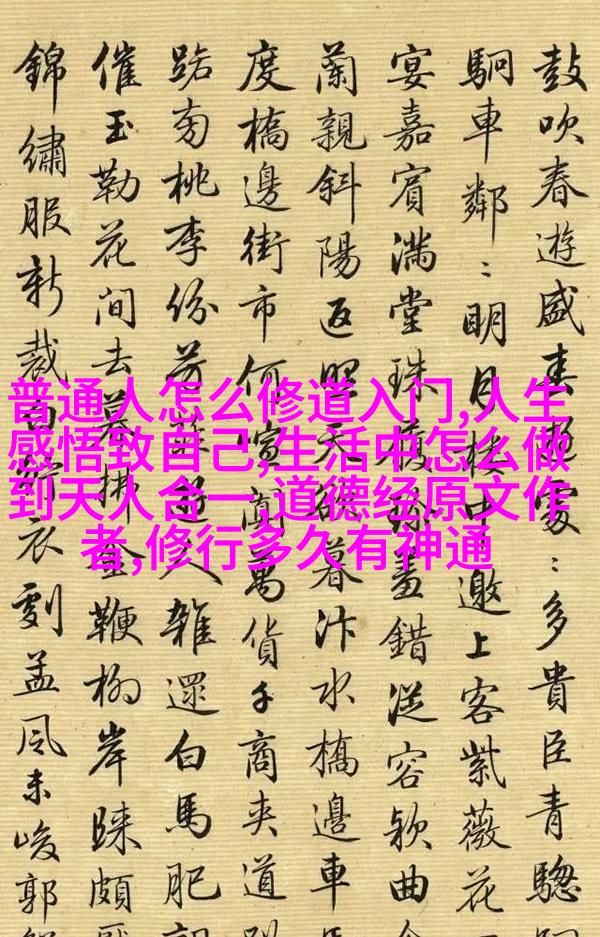 鼓吹春遊盛春家〻多貴臣青驄
駟車鄰〻明月樓中邀上客紫薇花
宴嘉賓滿堂珠畫錯從容欵曲
蘭親斜陽返照天欲暮汴水橋邊車
度橋邊街市何喧闐萬貨千商夾道
桃李份芳遊人雜還白馬肥
催玉勒花間去暮拂金鞭柳岸踈頗
錦繡服新裁白紵衣剗孟風未峻郭
普通人怎么修道入门,人生
感悟致自己,生活中怎么做
到天人合一,道德经原文作
者,修行多久有神通